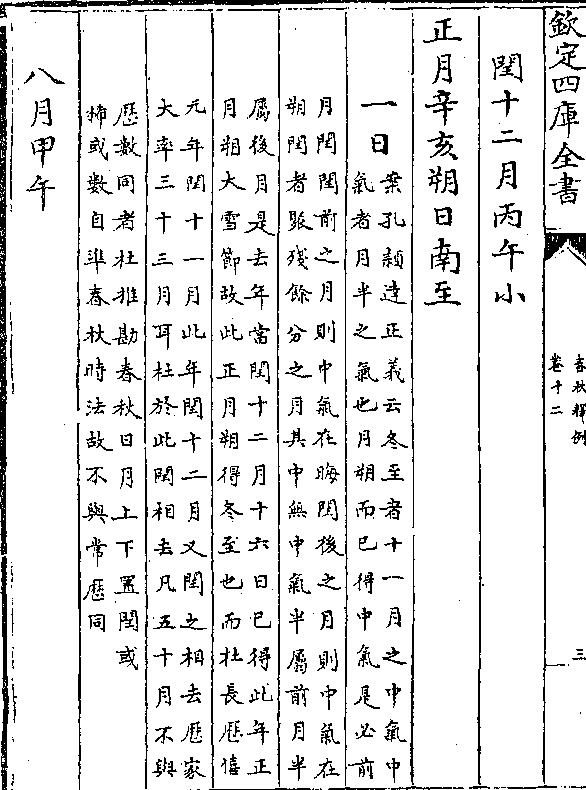 欽定四庫全書
春秋釋例
卷十二
三
閏十二月丙午小
正月辛亥朔日南至
一日
案孔穎達正義云冬至者十一月之中氣中
氣者月半之氣也月朔而已得中氣是必前
月閏閏前之月則中氣在晦閏後之月則中氣在
朔閏者聚殘餘分之月其中無中氣半屬前月半
屬後月是去年當閏十二月十六日已得此年正
月朔大雪節故此正月朔得冬至也而杜長歴僖
元年閏十一月此年閏十二月又閏之相去歴家
大率三十三月耳杜於此閏相去凡五十月不與
歴數同者杜推勘春秋日月上下置閏或
稀或數自準春秋時法故不與常歴同
八月甲午